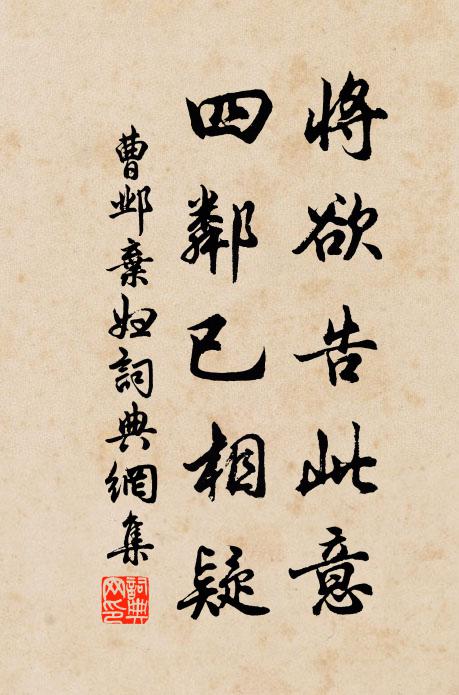 將欲告此意
四鄰已相疑
曹邺棄妇詞典網集
詞典网印